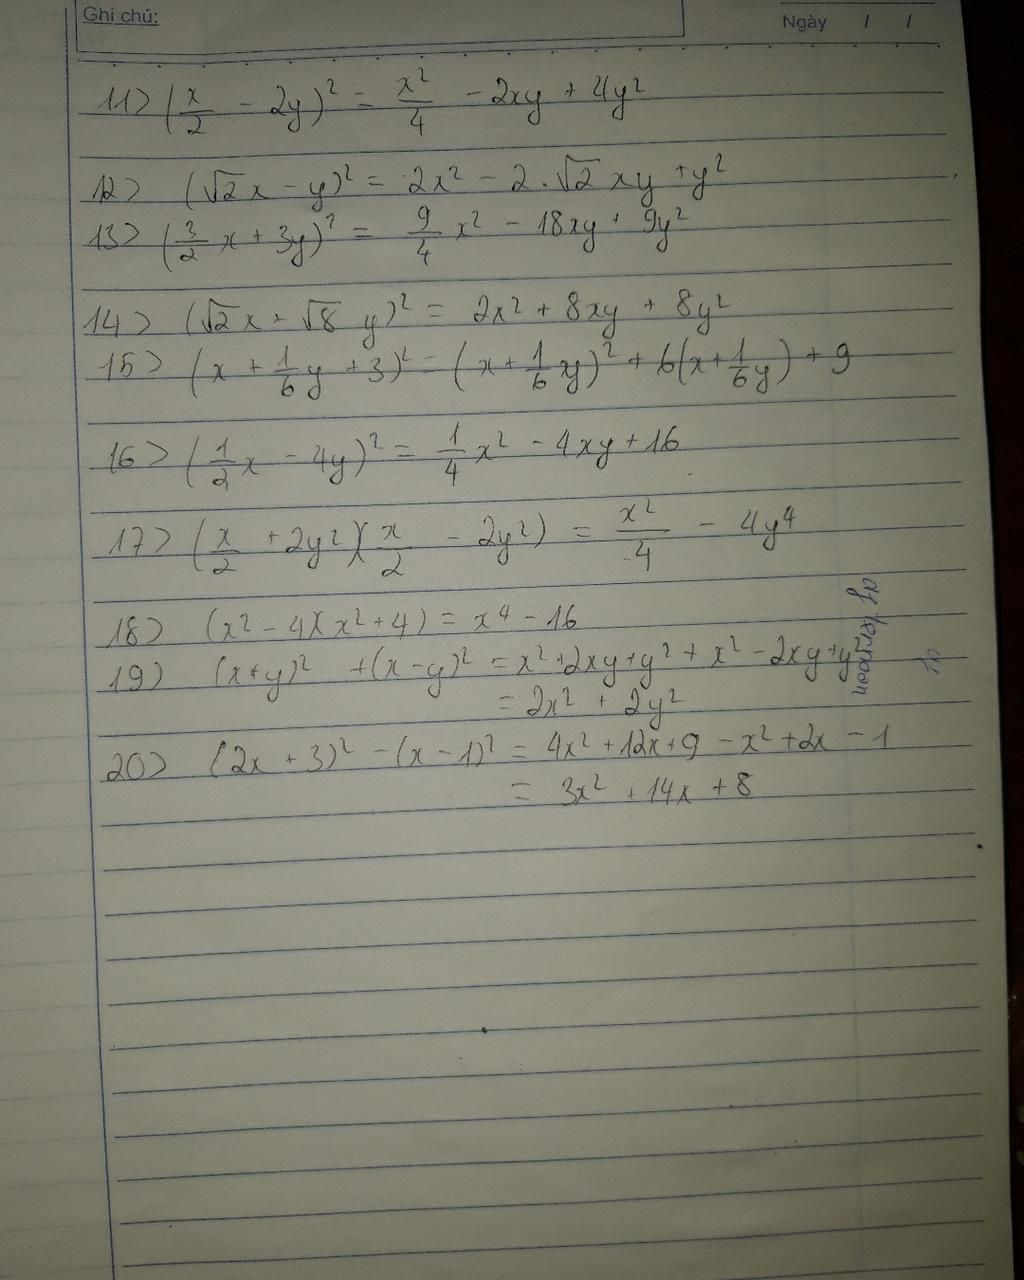 Ghi chú:
Ngày / /
11> (x/2 - 2y)² = x²/4 - 2xy + 4y²
12> (√2x - y)² = 2x² - 2.√2xy + y²
13> (3/2 x + 3y)² = 9/4 x² - 18xy + 9y²
14> (√2x + √8 y)² = 2x² + 8xy + 8y²
15> (x + 1/6 y + 3)² = (x + 1/6 y)² + 6(x + 1/6 y) + 9
16> (1/2 x - 4y)² = 1/4 x² - 4xy + 16
17> (x/2 + 2y²)(x/2 - 2y²) = x²/4 - 4y⁴
18> (x² - 4)(x² + 4) = x⁴ - 16
19) (x+y)² + (x-y)² = x² + 2xy + y² + x² - 2xy + y²
= 2x² + 2y²
20> (2x + 3)² - (x - 1)² = 4x² + 12x + 9 - x² + 2x - 1
= 3x² + 14x + 8